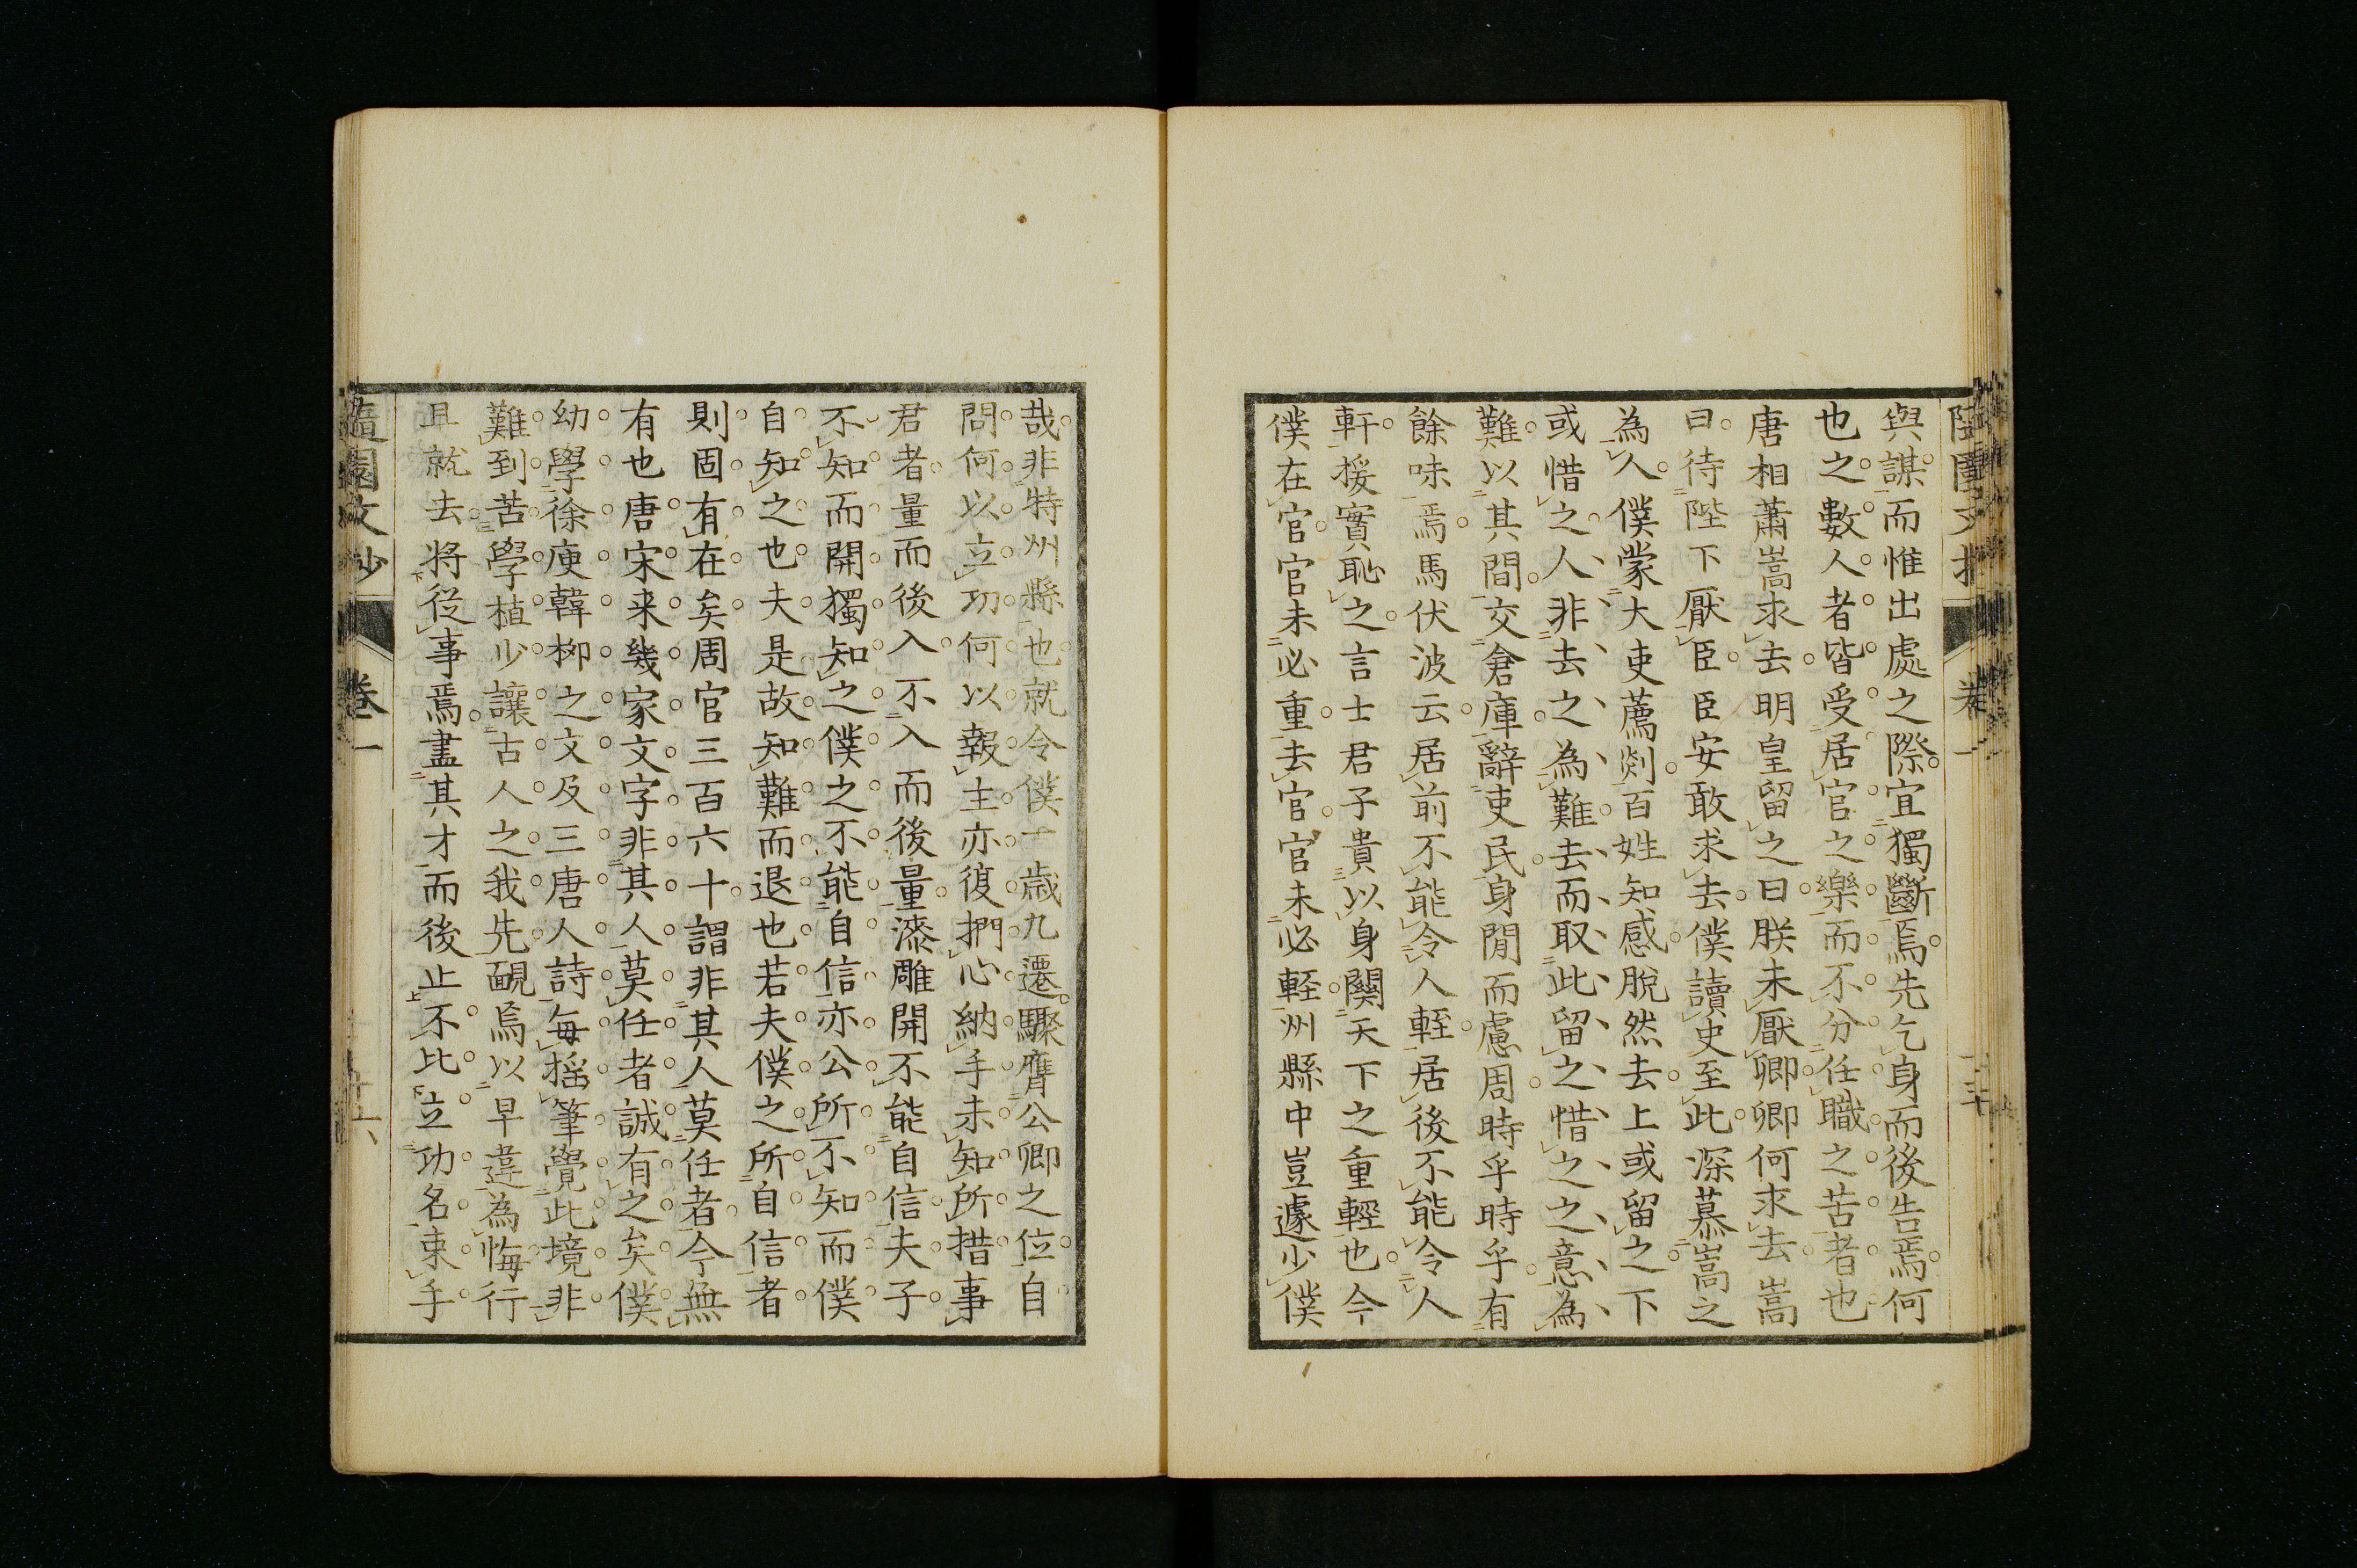 與謀而惟出處之際宜獨斷焉先乞身而後告焉何
也之數人者皆受居官之樂而不分任職之苦者也
唐相蕭嵩求去明皇留之曰朕未厭卿卿何求去嵩
曰待陛下厭臣臣安敢求去僕讀史至此深慕嵩之
為人僕蒙大吏薦剡百姓知感脫然去上或留之下
或惜之人非去之為難去而取此留之惜之之意為
難以其間交倉庫辭吏民身閒而慮周時乎時乎有
餘味焉馬伏波云居前不能令人輊居後不能令人
軒援實恥之言士君子貴以身關天下之重輕也今
僕在官官未必重去官官未必輕州縣中豈遽少僕
哉非特州縣也就令僕一歲九遷驟膺公卿之位自
問何以立功何以報主亦復捫心納手未知所措事
君者量而後入不入而後量漆雕開不能自信夫子
不知而開獨知之僕之不能自信亦公所不知而僕
自知之也夫是故知難而退也若夫僕之所自信者
則固有在矣周官三百六十謂非其人莫任者今無
有也唐宋来幾家文字非其人莫任者誠有之矣僕
幼學徐庾韓柳之文及三唐人詩每搖筆覺此境非
難到苦學植少讓古人之我先靦焉以早達為悔行
且就去將從事焉盡其才而後止不比立功名束手
隨園文抄 卷一 十六